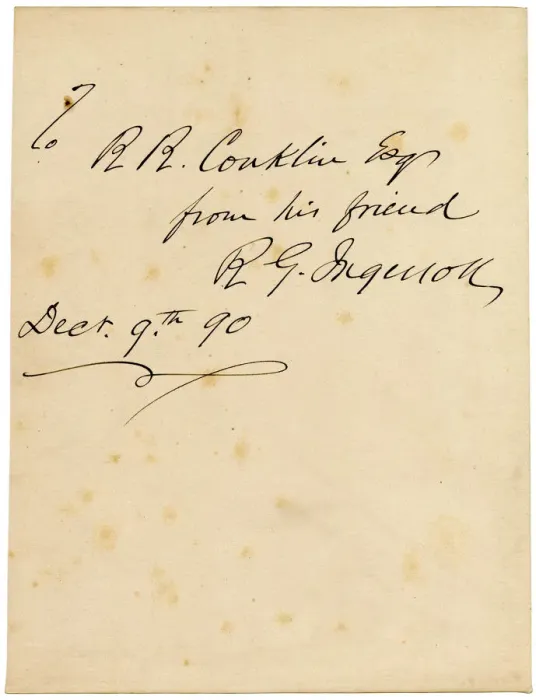 To
R R. Conklin Esq
from his friend
R G. Ingersoll
Dect. 9.th 90